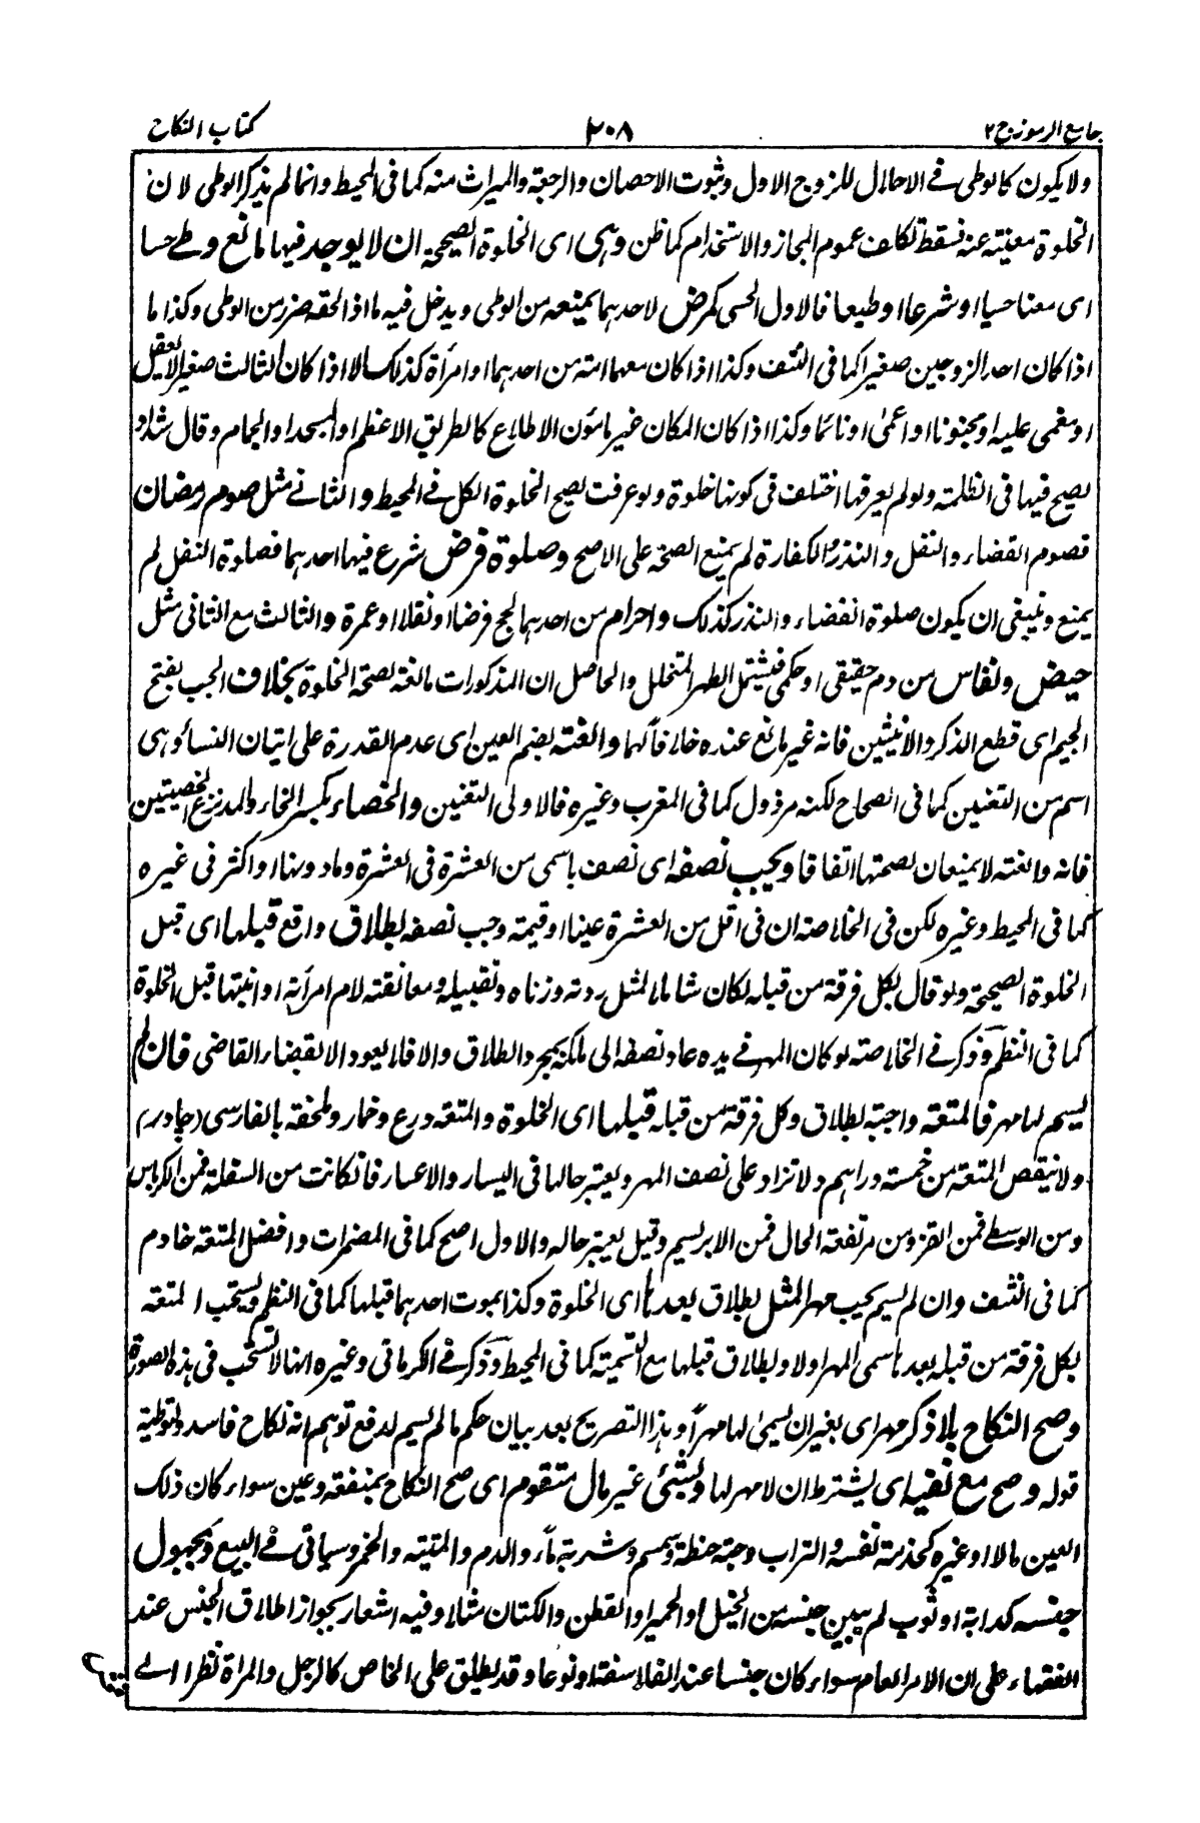 جامع الرموز ج ٢
٢٠٨
كتاب النكاح
ولا يكون كالوطى فے الاحلال للزوج الاول وثبوت الاحصان والرجعة والميراث منه كما فى المحيط وانما لم يذكر الوطى لان
الخلوة مغنية عنه فسقط تكلف عموم المجاز والاستخدام كما ظن وہى اى الخلوة الصحيحة ان لا يوجد فيها مانع وطے حسا
اى معنا حسيا او شرعا او طبعا فالاول الحسى كمرض لاحدہما يمنعه من الوطى ويدخل فيه ما اذا لحقه ضرر من الوطى وكذا ما
اذا كان احد الزوجين صغيرا كما فى النتف وكذا اذا كان معهما امة من احدہما او امرأة كذلك الا اذا كان الثالث صغيرا لا يعقل
او مغمى عليه او مجنونا او اعمىٰ او نائما وكذا اذا كان المكان غير مأمون الاطلاع كالطريق الاعظم او المسجد او الحمام وقال شداد
يصح فيها فى الظلمة ولو لم يعرفها اختلف فى كونها خلوة ولو عرفت يصح الخلوة الكل فے المحيط والثانے مثل صوم رمضان
فصوم القضاء والنفل والنذر والكفارة لم يمنع الصحة على الاصح وصلوة فرض شرع فيها احدہما فصلوة النفل لم
يمنع وينبغى ان يكون صلوة القضاء والنذر كذلك واحرام من احدہما لحج فرضا او نفلا او عمرة والثالث مع الثانى مثل
حيض ونفاس من دم حقيقى او حكمى فيشتمل الطهر المتخلل والحاصل ان المذكورات مانعة لصحة الخلوة بخلاف الجب بفتح
الجيم اى قطع الذكر والانثيين فانه غير مانع عنده خلافاً لهما والعنته بضم العين اى عدم القدرة على اتيان النساء وہى
اسم من التعنين كما فى الصحاح لكنه مرذول كما فى المغرب وغيره فالاولى التعنين والخصاء بكسر الخاء والمد نزع الخصيتين
فانه والعنته لا يمنعان لصحتها اتفاقا ويجب نصفه اى نصف ما سمى من العشرة فى العشرة وما دونها او اكثر فى غيره
كما فى المحيط وغيره لكن فى الخلاصة ان فى اقل من العشرة عينا او قيمة وجب نصفه بطلاق واقع قبلها اى قبل
الخلوة الصحيحة ولو قال بكل فرقة من قبله لكان شاملا لمثل ردته وزناه وتقبيله ومعانقته لام امرأته او ابنتها قبل الخلوة
كما فى النظم وذكر فے الخلاصة لو كان المهر فے يده عاد نصفه الى ملكه بمجرد الطلاق والا فلا يعود الا بقضاء القاضى فان لم
يسم لها مهر فالمتعة واجبة بطلاق وكل فرقة من قبله قبلها اى الخلوة والمتعة درع وخمار وملحفة بالفارسى (چادر)
ولا ينقص المتعة من خمسة دراہم ولا تزاد على نصف المهر ويعتبر حالها فى اليسار والاعسار فان كانت من السفلة فمن الكرباس
ومن الوسطے فمن القز ومن مرتفعة الحال فمن الابريسم وقيل يعتبر حاله والاول اصح كما فى المضمرات وافضل المتعة خادم
كما فى النتف وان لم يسم يجب مهر المثل بطلاق بعدہا اى الخلوة وكذا بموت احدہما قبلها كما فى النظم ويستحب المتعة
بكل فرقة من قبله بعد ما سمى المهر اولا وبطلاق قبلها مع التسمية كما فى المحيط وذكر فے الكرمانى وغيره انها لا تستحب فى ہذه الصورة
وصح النكاح بلا ذكر مهر اى بغير ان يسمىٰ لها مهراً وہذا التصريح بعد بيان حكم ما لم يسم لدفع توہم انه نكاح فاسد ولتوطية
قوله وصح مع نفيه اى يشترط ان لا مهر لها وبشئ غير مال متقوم اى صح النكاح بمنفعة وعين سواء كان ذلك
العين مالا او غيره كخدمة نفسه والتراب وحبة حنطة وسمسم وشربة ماء والدم والميتة والخمر وسياتى فے البيع وبمجهول
جنسه كدابة او ثوب لم يبين جنسه من الخيل او الحمير او القطن والكتان مثلا وفيه اشعار بجواز اطلاق الجنس عند
الفقہاء على ان الامر العام سواء كان جنسا عند الفلاسفة او نوعا وقد يطلق على الخاص كالرجل والمرأة نظرا الے